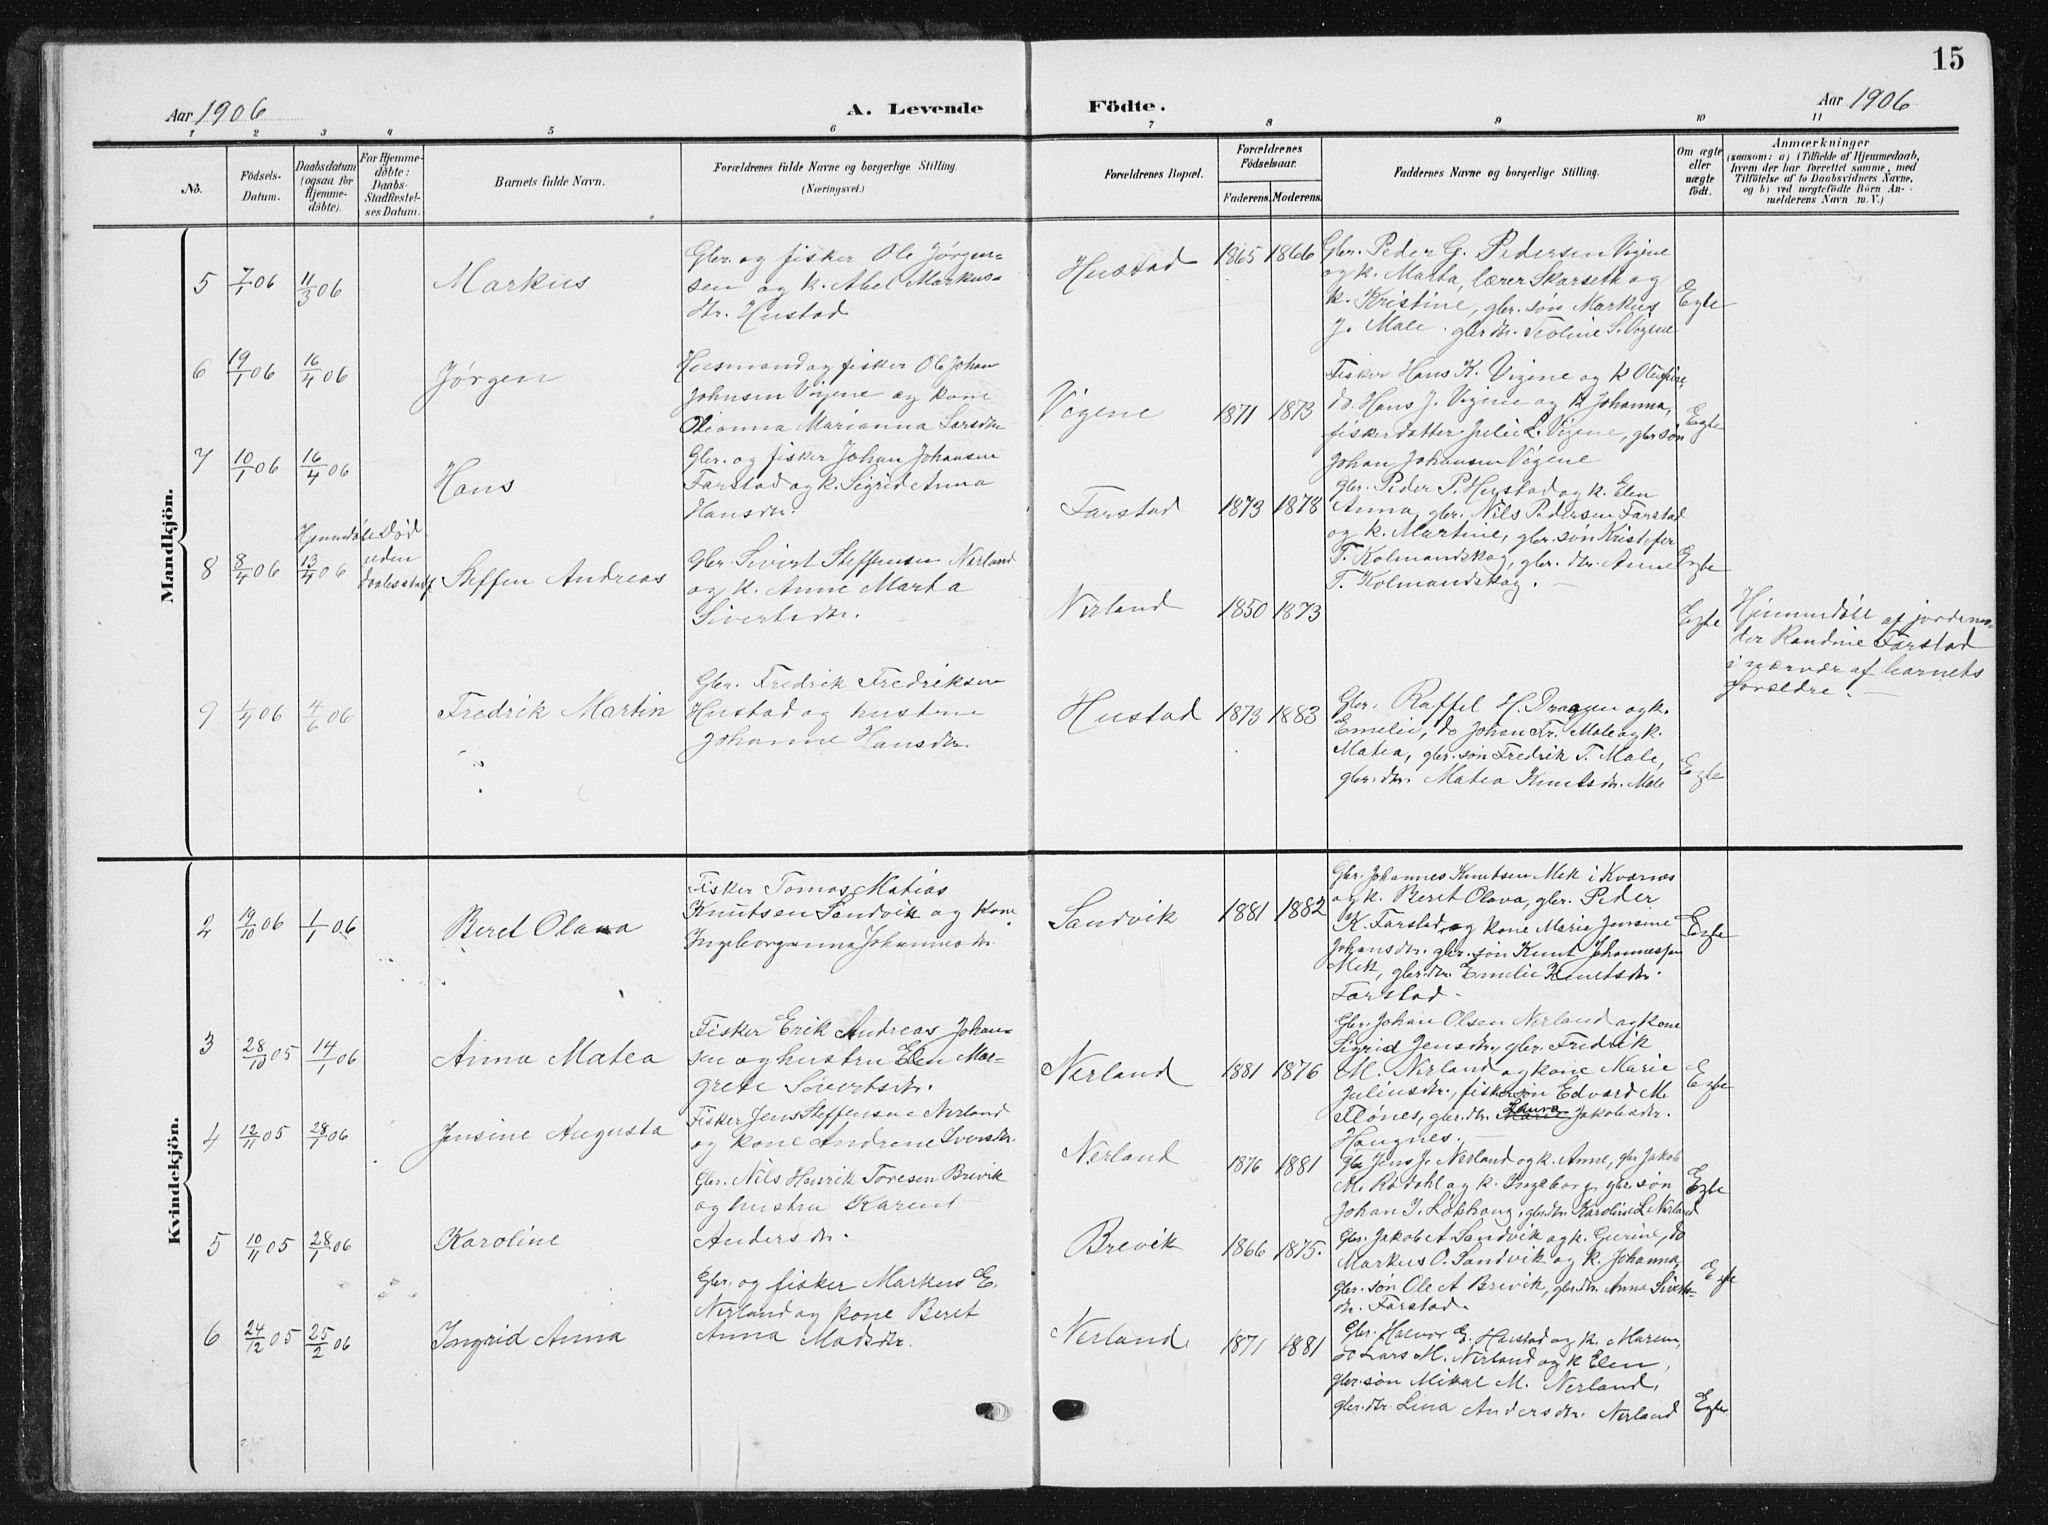 15
Aar 1906
A. Levende
Födte.
Aar 1906
1 2 3 4 5 6 7 8 9 10 11
No.
Födsels-
Datum.
Daabsdatum
(ogsaa for
Hjemme-
döbte).
For Hjemme-
döbte:
Daabs-
Stadfæstel-
ses Datum.
Barnets fulde Navn.
Forældrenes fulde Navne og borgerlige Stilling.
(Næringsvei.)
Forældrenes Bopæl.
Forældrenes
Födselsaar.
Faderens. Moderens.
Faddernes Navne og borgerlige Stilling.
Om ægte
eller
uægte
födt.
Anmærkninger
(saasom: a) i Tilfælde af Hjemmedaab,
hvem der har forrettet samme, med
Tilföielse af to Daabsvidners Navne,
og b) ved uægtefödte Börn An-
melderens Navn m. V.)
Mandkjön.
5 7/1 06 11/3 06
Markus
Gbr. og fisker Ole Jørgen-
sen og k. Abel Markus-
dtr. Hustad
Hustad
1865 1866
Gbr. Peder G. Pedersen Vigene
og k. Marta, lærer Skarseth og
k. Kristine, gbr. søn Markus
J. Male. gbr. dtr. Teoline S. Vigene
Egte
6 19/1 06 16/4 06
Jørgen
Husmand og fisker Ole Johan
Johnsen Vigene og kone
Olianna Marianna Larsdtr
Vigene
1871 1873
Fisker Hans K. Vigene og k
do. Hans J. Vigene og k Johanna,
fiskerdatter Julie L. Vigene, gbr søn
Johan Johansen Vigene
Egte
7 10/1 06 16/4 06
Hans
Gbr. og fisker Johan Johansen
Farstad og k. Sigrid Anna
Hansdtr.
Farstad
1873 1878
gbr. Peder P. Hustad og k. Elen
Anna, gbr. Nils Pedersen Farstad
og k. Martine, gbr. søn Kristofer
T. Kolmandskog, gbr. dtr. Anne
T. Kolmandskog.
Egte
8 8/4 06
Hjemmedøbt
13/4 06
Død
uden
daabsstadf.
Steffen Andreas
Gbr. Sivert Steffensen Nerland
og k. Anne Marta
Sivertsdtr.
Nerland
1850 1873
Egte
Hjemmedøbt af jordemo-
der Randine Farstad
i nærvær af barnets
forældre.
9 1/4 06 4/6 06
Fredrik Martin
Gbr. Fredrik Fredriksen
Hustad og hustru
Johanne Hansdtr.
Hustad
1873 1883
Gbr. Raffel H. Dragen og k.
Emelie, do Johan Fr. Male og k.
Matea, gbr. søn Fredrik T. Male,
gbr. dtr. Matea Knutsdtr. Male
Egte
Kvindekjön.
2 19/10 06 1/1 06
Beret Olava
Fisker Tomas Matias
Knutsen Sandvik og kone
Ingeborganna Johannesdtr.
Sandvik
1881 1882
Gbr. Johannes Knutsen Mek i Kværnes
og k. Beret Olava, gbr. Peder
K. Farstad og kone Marie Jensine
Johansdtr. gbr. søn Knut Johannessen
Mek, gbr. dtr. Emelie Knutsdtr.
Farstad.
Egte
3 28/10 05 14/1 06
Anna Matea
Fisker Erik Andreas Johan-
sen og hustru Elen Mar-
grete Sivertsdtr.
Nerland
1881 1876
Gbr. Johan Olsen Nerland og kone
Sigrid Jensdtr, gbr. Fredrik
M. Nerland og kone Marie
Juliusdtr., fiskersøn Edvard M.
Flønes, gbr. dtr. Laura Jakobsdtr.
Haugnes.
Egte
4 12/11 05 28/1 06
Jensine Augusta
Fisker Jens Steffensen Nerland
og kone Andrene Iversdtr.
Nerland
1876 1881
Gbr Jens J. Nerland og k. Anne, gbr Jakob
M. Rødahl og k. Ingeborg, gbr. søn
Johan I. Løkhaug, gbr. dtr. Karoline L Nerland
Egte
5 10/11 05 28/1 06
Karoline
Gbr. Nils Henrik Toresen Brevik
og hustru Karen
Andersdtr.
Brevik
1866 1875.
Gbr. Jakob A Sandvik og k. Gurine, do
Markus O. Sandvik og k. Johanna,
gbr. søn Ole A Brevik, gbr. dtr. Anna Siverts-
dtr. Farstad.
Egte
6 24/12 05 25/2 06
Ingrid Anna
Gbr. og fisker Markus E.
Nerland og kone Beret
Anna Madsdtr.
Nerland
1871 1881
Gbr. Halvor E. Harstad og k. Maren,
do Lars M. Nerland og k Elen,
gbr. søn Mikal M. Nerland,
gbr. dtr. Lina Andersdtr. Nerland
Egte